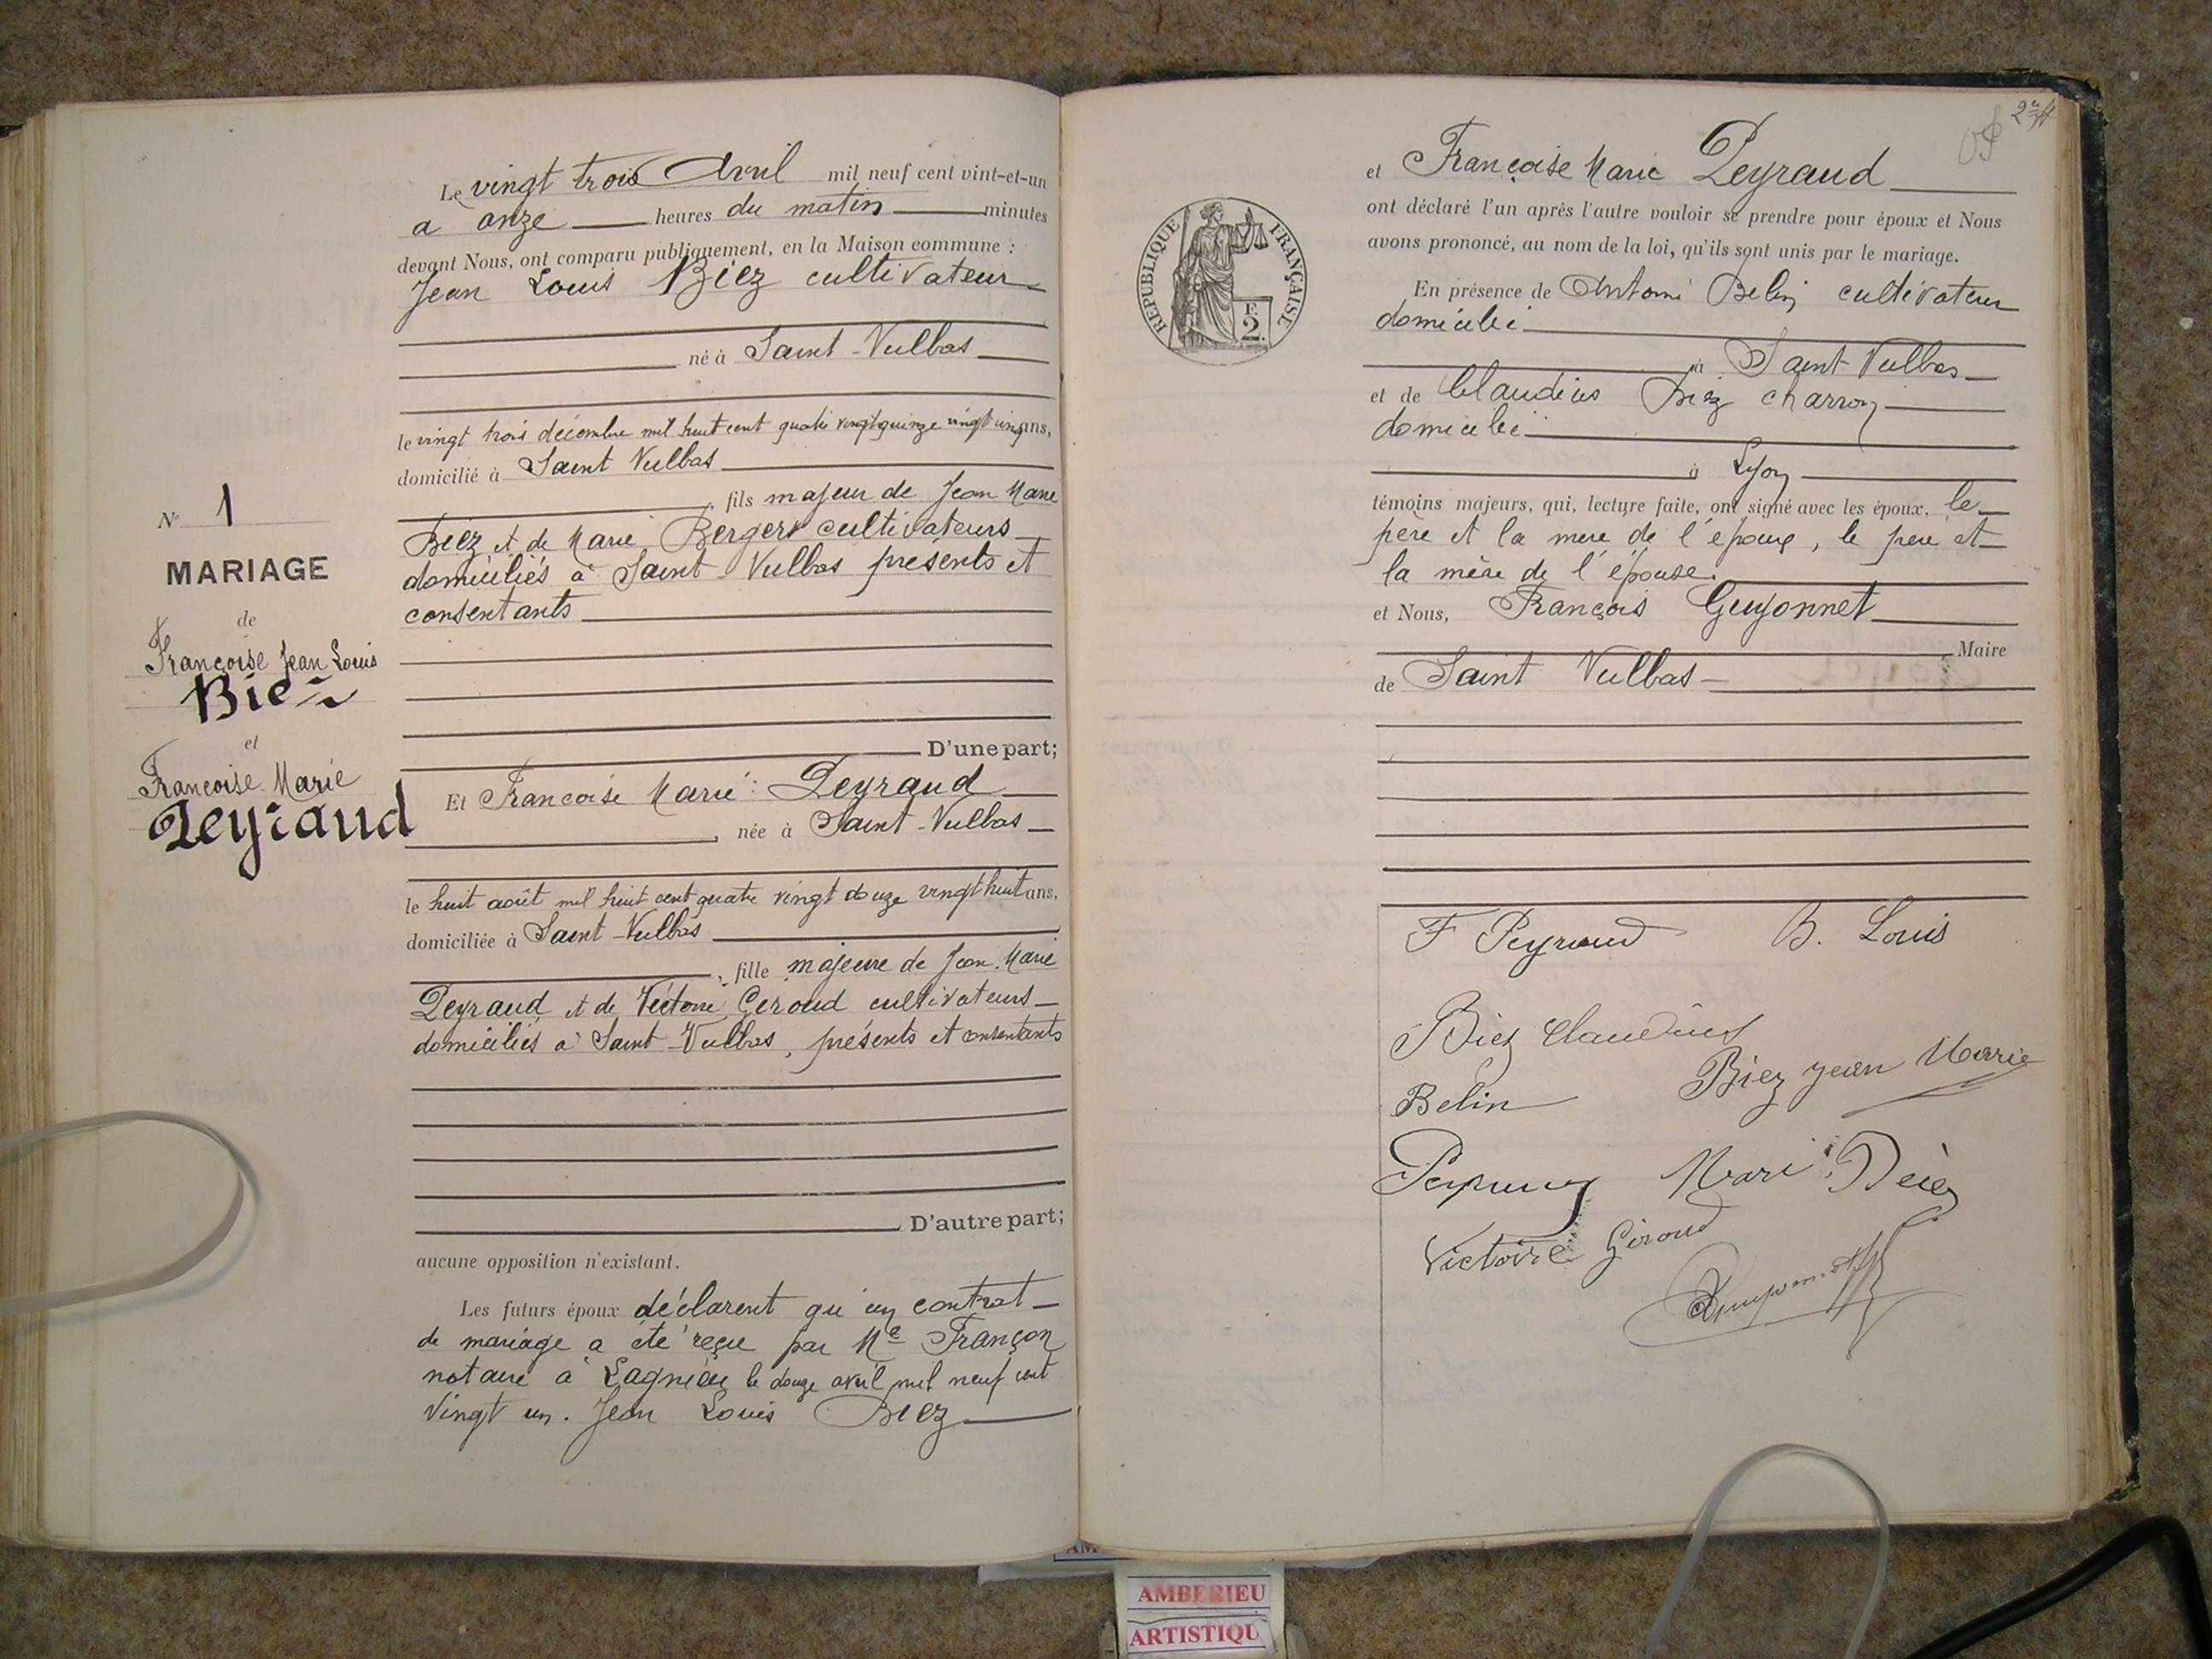 N° 1
MARIAGE
de
Françoise Jean Louis
Biez
et
Françoise Marie
Peyraud
Le vingt trois Avril mil neuf cent vint-et-un
à onze heures du matin minutes
devant Nous, ont comparu publiquement, en la Maison commune :
Jean Louis Biez cultivateur
né à Saint-Vulbas
le vingt trois décembre mil huit cent quatre vingt quinze vingt cinq ans,
domicilié à Saint Vulbas
, fils majeur de Jean Marie
Biez et de Marie Berger cultivateurs
domiciliés à Saint-Vulbas présents et
consentants
D'une part;
Et Françoise Marie Peyraud
, née à Saint-Vulbas
le huit août mil huit cent quatre vingt douze vingt huit ans,
domiciliée à Saint-Vulbas
, fille majeure de Jean-Marie
Peyraud et de Victoire Geroud cultivateurs
domiciliés à Saint-Vulbas, présents et consentants
D'autre part;
aucune opposition n'existant.
Les futurs époux déclarent qu'un contrat
de mariage a été reçu par Me Françon
notaire à Lagnieu le douze avril mil neuf cent
vingt un. Jean Louis Biez
2e
et Françoise Marie Peyraud
ont déclaré l'un après l'autre vouloir se prendre pour époux et Nous
avons prononcé, au nom de la loi, qu'ils sont unis par le mariage.
RÉPUBLIQUE FRANÇAISE
F. 2.
En présence de Antoine Belin cultivateur
domicilié
à Saint-Vulbas
et de Claudius Biez charron
domicilié
à Lyon
témoins majeurs, qui, lecture faite, ont signé avec les époux, le
père et la mère de l'époux, le père et
la mère de l'épouse.
et Nous, François Guyonnet
Maire
de Saint Vulbas
F Peyraud B. Louis
Biez Claudius
Biez Jean Marie
Belin
Peyraud Marie Biez
Victoire Giroud
Guyonnet
AMBERIEU
ARTISTIQU